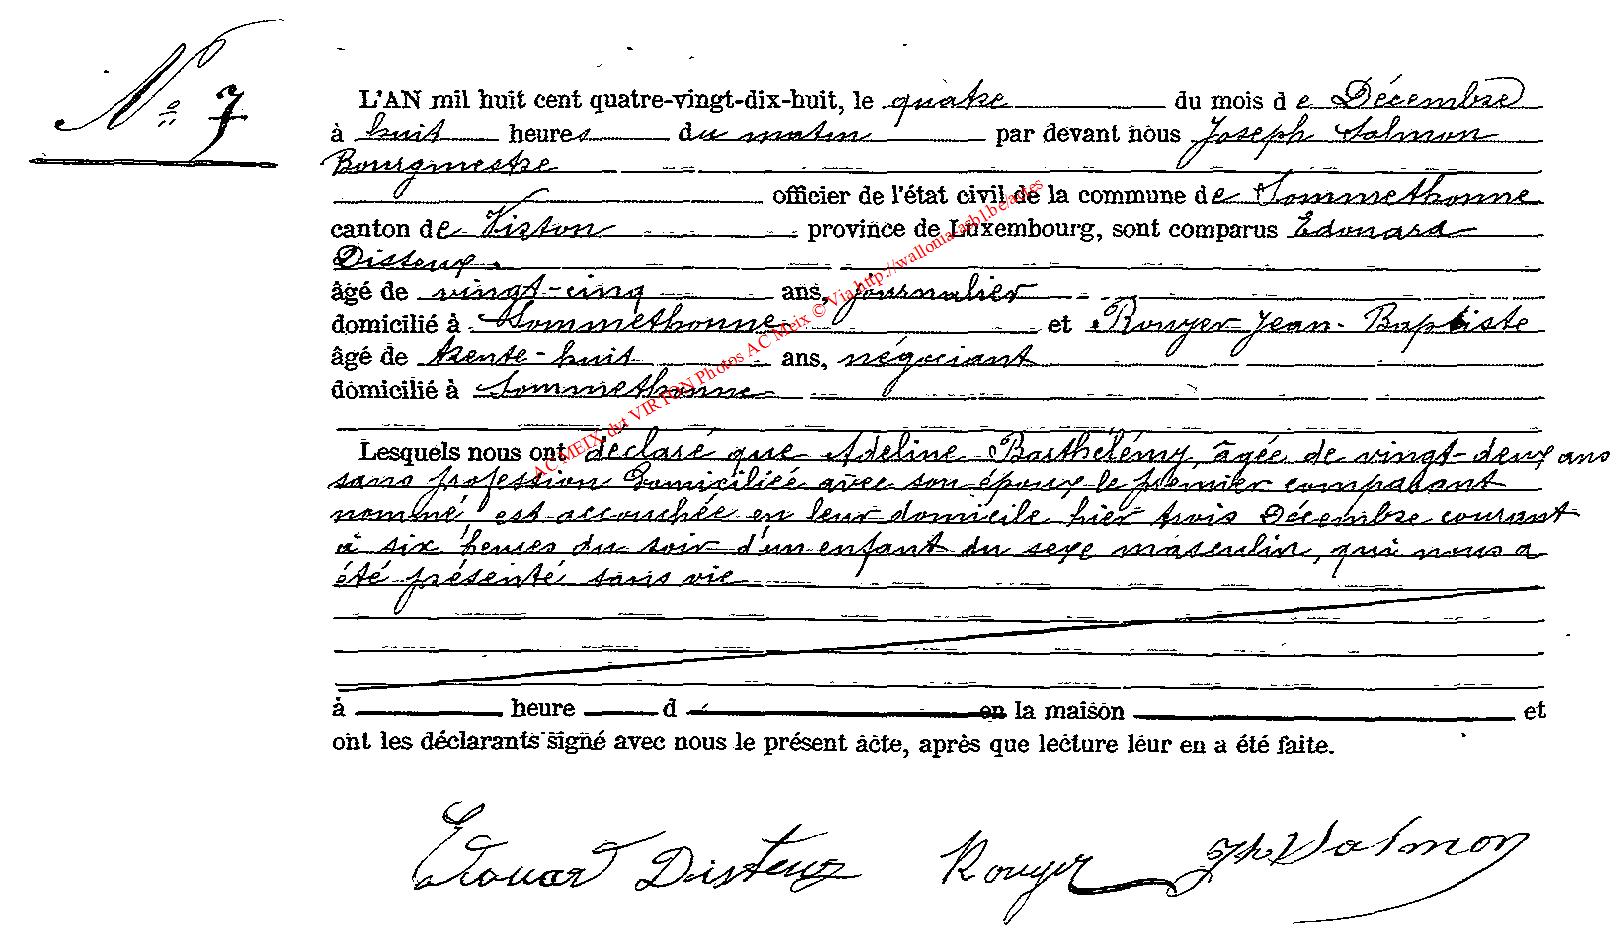 N° 7
L'AN mil huit cent quatre-vingt-dix-huit, le quatre du mois de Décembre
à huit heures du matin par devant nous Joseph Salmon
Bourgmestre
officier de l'état civil de la commune de Sommethonne
canton de Virton province de Luxembourg, sont comparus Edouard
Disteux.
âgé de vingt-cinq ans, journalier
domicilié à Sommethonne et Rouyer Jean-Baptiste
âgé de trente-huit ans, négociant
domicilié à Sommethonne
Lesquels nous ont déclaré que Adeline Barthélémy, âgée de vingt-deux ans
sans profession domiciliée avec son époux le premier comparant
nommé, est accouchée en leur domicile hier trois Décembre courant
à six heures du soir d'un enfant du sexe masculin, qui nous a
été présenté sans vie
à heure d en la maison et
ont les déclarants signé avec nous le présent acte, après que lecture leur en a été faite.
Edouard Disteux Rouyer Jh Salmon
AC MEIX dvt VIRTON Photos AC Meix © Via http://wallonia-asbl.be/actes